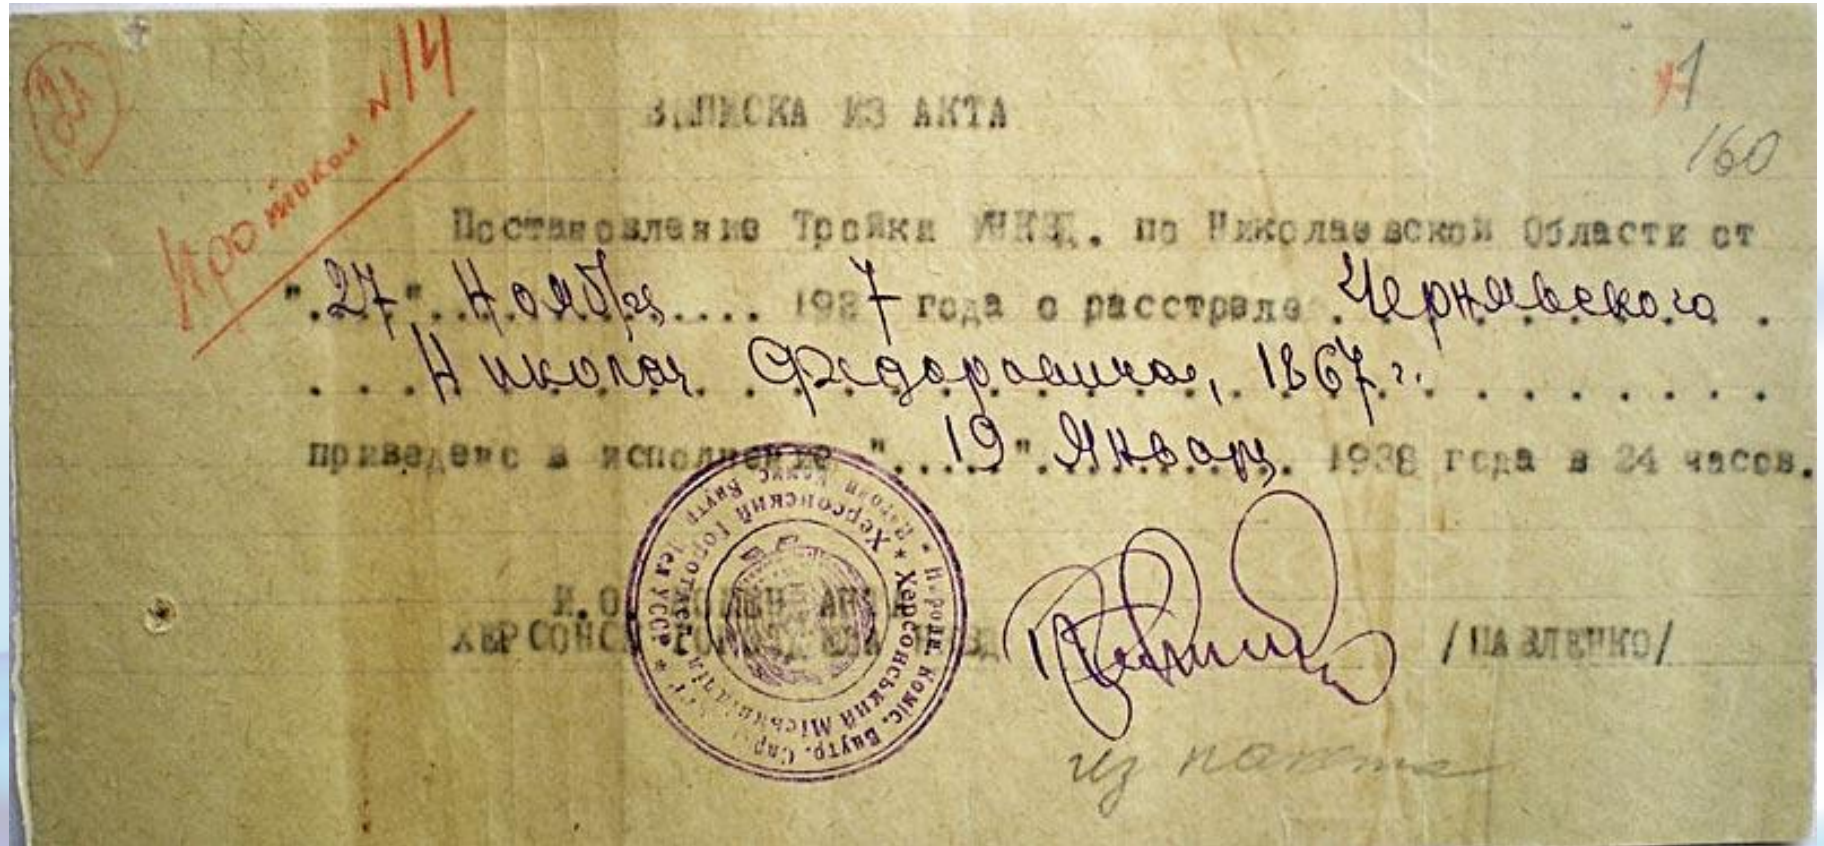 21
Протокол N 14
1
160
ВЫПИСКА ИЗ АКТА
Постановление Тройки УНКВД. по Николаевской Области от
".27"..Ноября.... 1937 года о расстреле .Чернявского.
...Николая Федоровича, 1867 г.......
приведено в исполнение "..19"..Января. 1938 года в 24 часов.
И.О. КОМЕНДАНТА
ХЕРСОНСК ГОРОТДЕЛА НКВД /ПАВЛЕНКО/
Народн. Коміс. Внутр. Справ У.С.Р.Р. * Народн Комис. Внутр. Дел УССР *
Херсонський Міськвідділ * Херсонский Горотдел